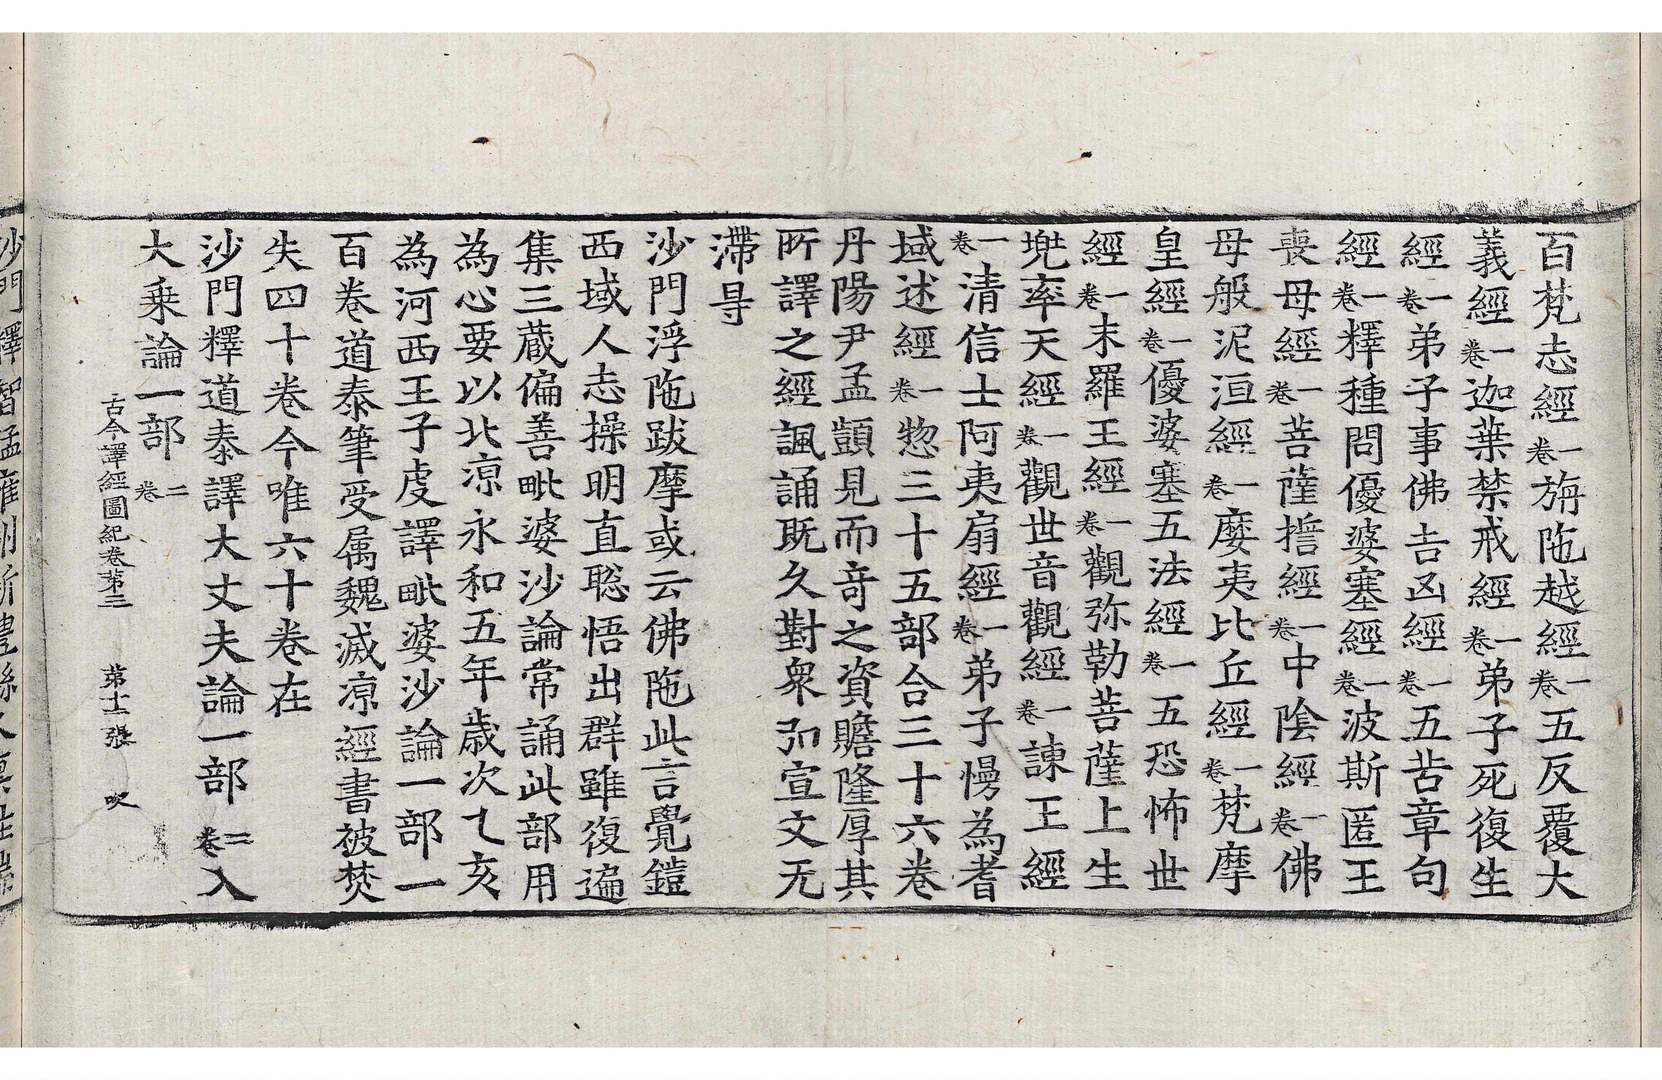 百梵志經一卷旃陁越經一卷五反覆大
義經一卷迦葉禁戒經一卷弟子死復生
經一卷弟子事佛吉凶經一卷五苦章句
經一卷釋種問優婆塞經一卷波斯匿王
喪母經一卷菩薩誓經一卷中陰經一卷佛
母般泥洹經一卷麼夷比丘經一卷梵摩
皇經一卷優婆塞五法經一卷五恐怖世
經一卷末羅王經一卷觀弥勒菩薩上生
兜率天經一卷觀世音觀經一卷諫王經
一卷清信士阿夷扇經一卷弟子慢為耆
域述經一卷惣三十五部合三十六卷
丹陽尹孟顗見而竒之資贍隆厚其
所譯之經諷誦既久對衆弘宣文无
滯㝵
沙門浮陁跋摩或云佛陁此言覺鎧
西域人志操明直聡悟出群雖復遍
集三蔵偏善毗婆沙論常誦此部用
為心要以北涼永和五年歳次乙亥
為河西王子虔譯毗婆沙論一部一
百卷道泰筆受属魏滅涼經書被焚
失四十卷今唯六十卷在
沙門釋道泰譯大丈夫論一部二卷入
大乗論一部二卷
古今譯經圖紀卷第三 第十二張 吹
沙門釋智猛雍州新豊縣人禀性